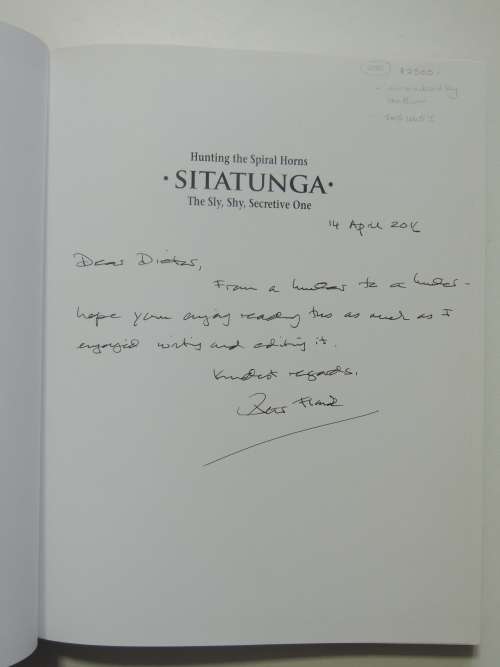 R2500-
Hunting the Spiral Horns
· SITATUNGA ·
The Sly, Shy, Secretive One
14 April 2016
Dear Dieter,
From a hunter to a hunter -
hope you enjoy reading this as much as I
enjoyed writing and editing it.
Kindest regards.
Peter Flack